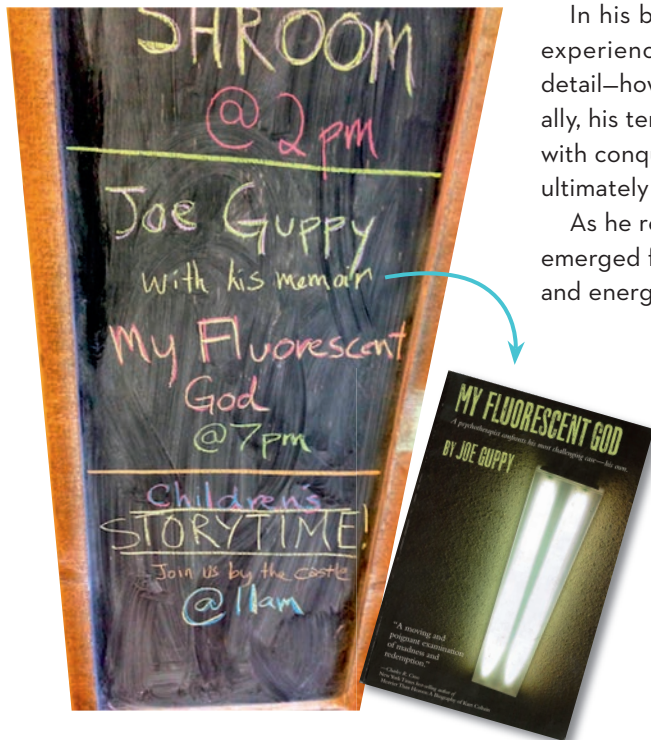 SHROOM
@ 2pm
Joe Guppy
with his memoir
My Fluorescent
God
@ 7pm
Children's
STORYTIME!
Join us by the castle
@ 11am
In his b
experienc
detail—hov
ally, his ter
with conqu
ultimately
As he re
emerged f
and energ
MY FLUORESCENT GOD
A psychotherapist confronts his most challenging case—his own.
BY JOE GUPPY
"A moving and
poignant examination
of madness and
redemption."
—Charles R. Cross
New York Times best-selling author of
Heavier Than Heaven: A Biography of Kurt Cobain